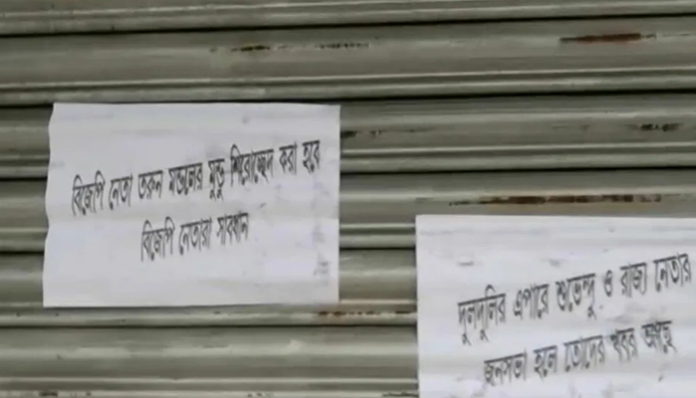 বিজেপি নেতা তরুন মন্ডলের মুন্ডু শিরোচ্ছেদ করা হবে
বিজেপি নেতারা সাবধান
দুলদুলির এপারে শুভেন্দু ও রাজ্য নেতার
জনসভা হলে তোদের খবর আছে